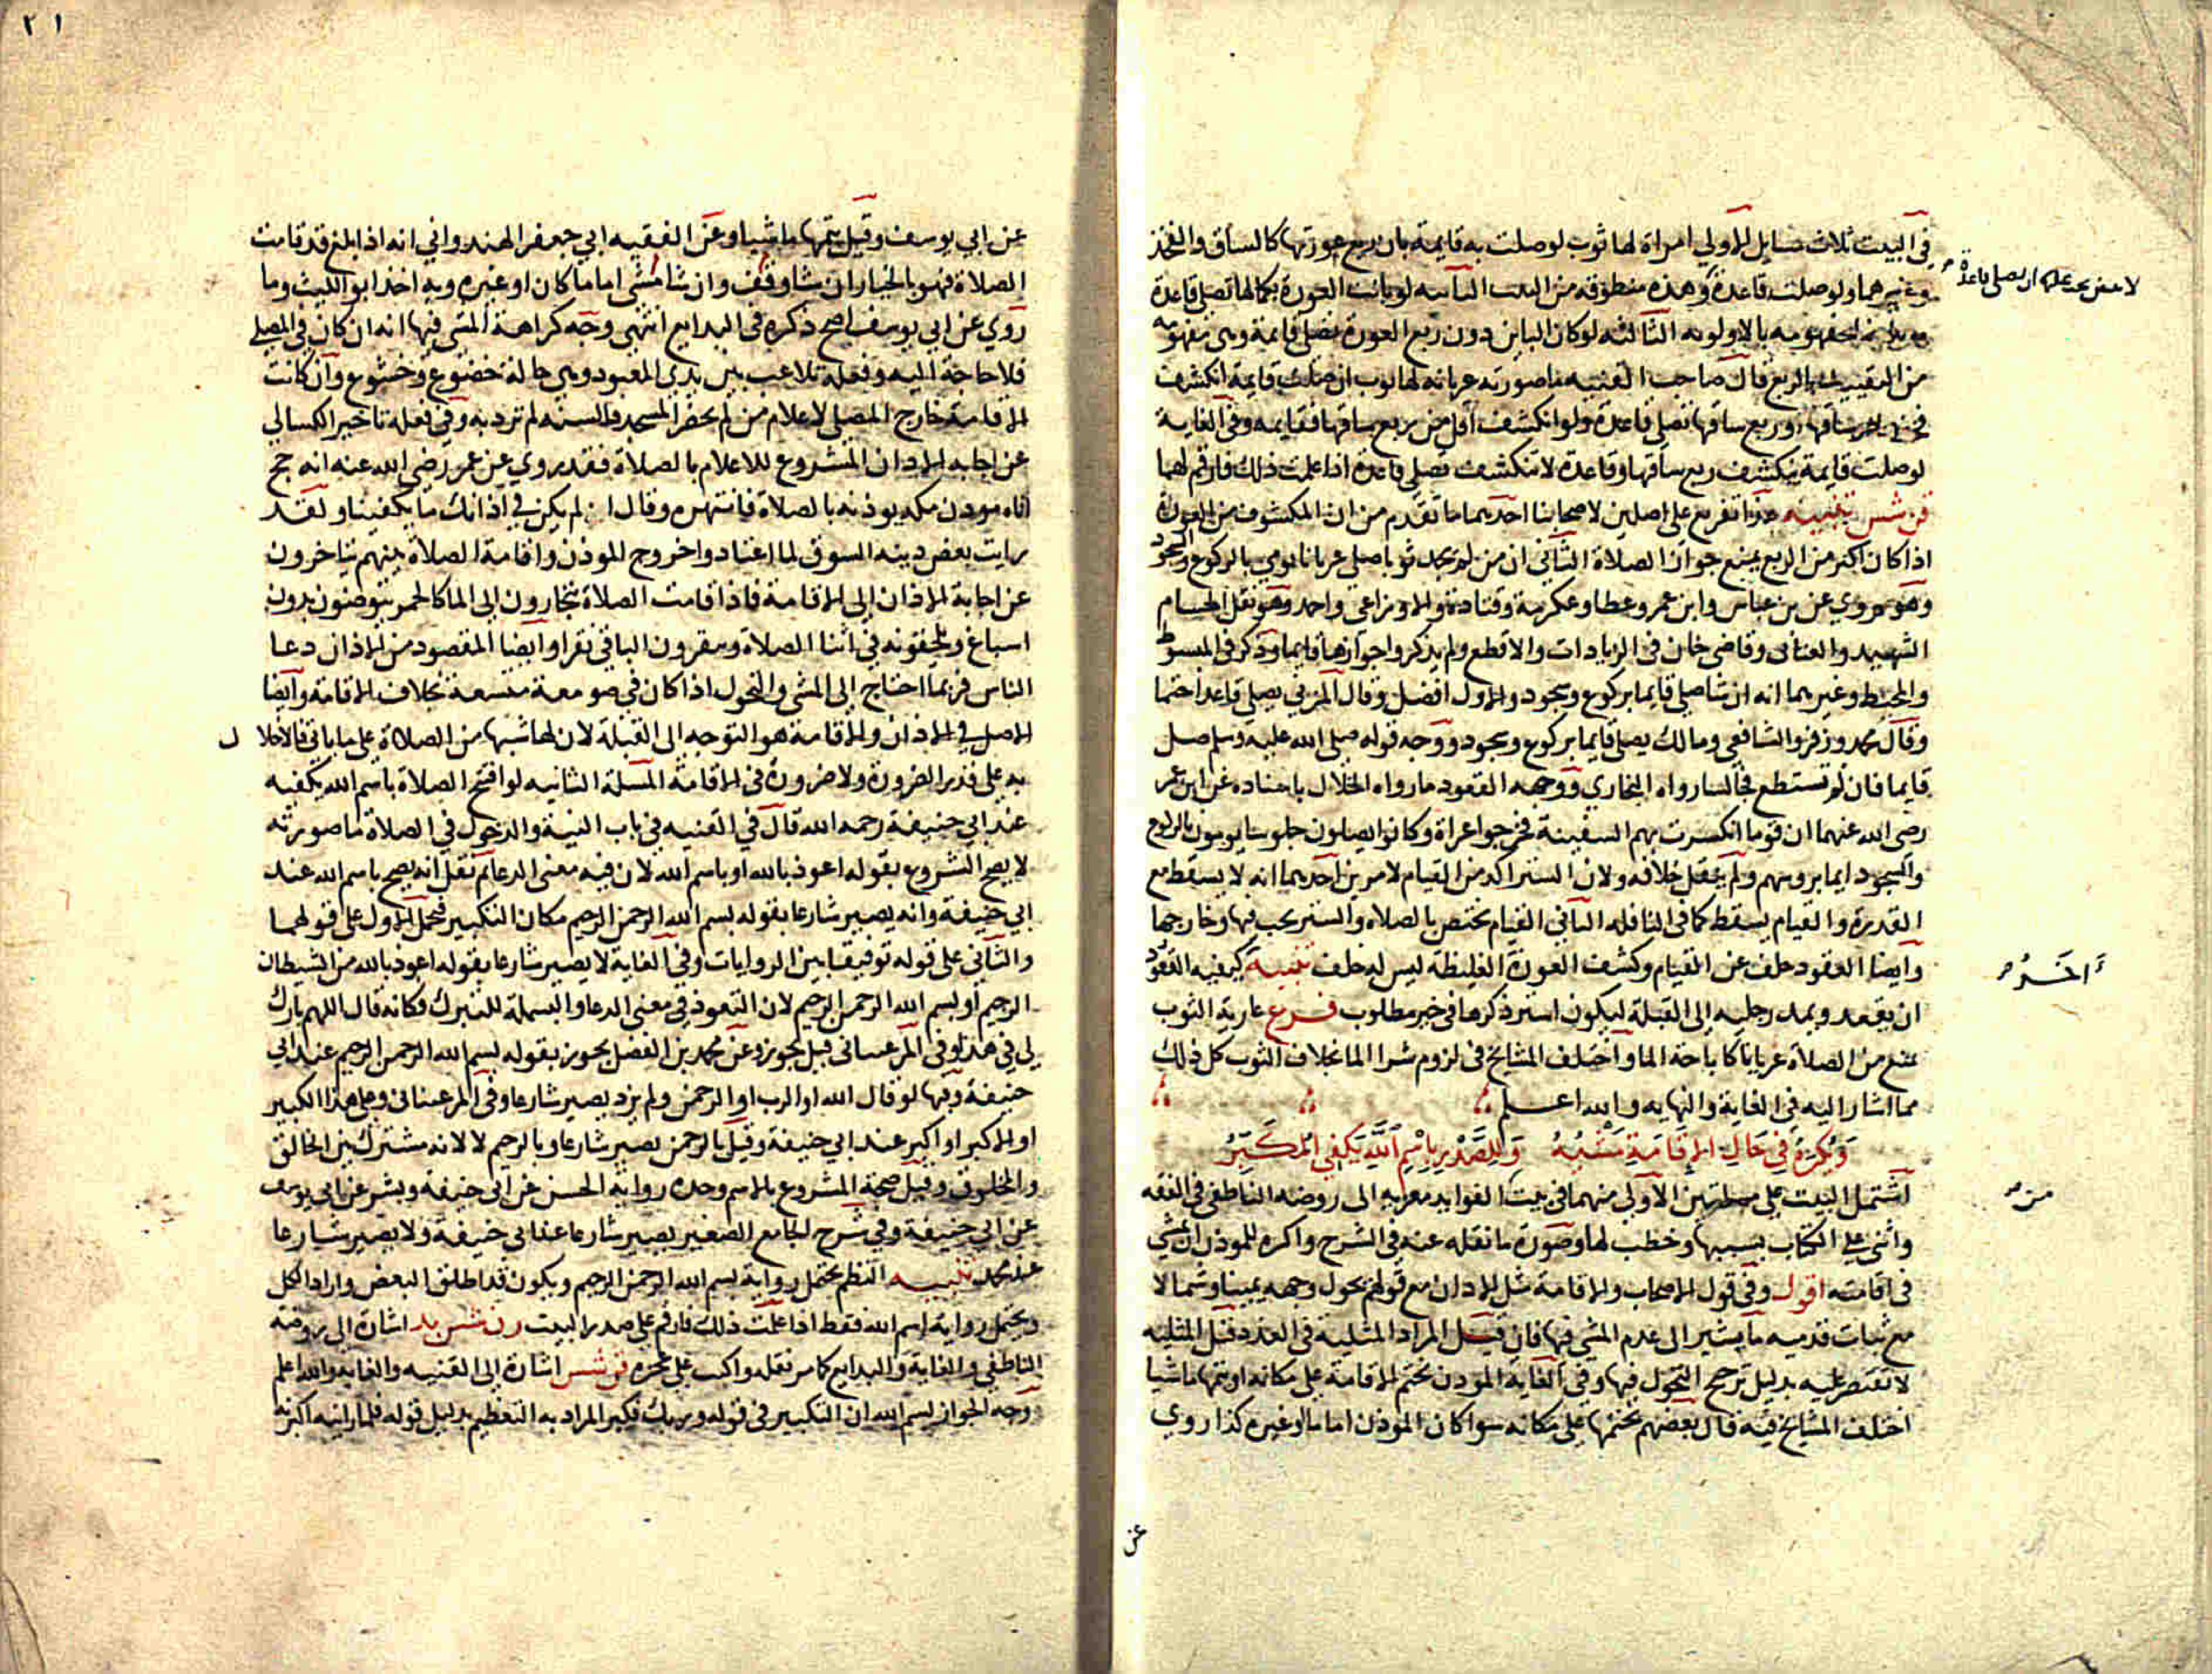 في البيت ثلاث مسايل الاولي امراة لها ثوب لو صلت به قايمة بان ربع عورتها كالساق والفخذ
وغيرهما ولو صلت قاعدة وهذه منطوقه من البيت الثانيه لو بانت العورة بكمالها تصلي قاعدة
الثالثه لو كان الباين دون ربع العورة تصلي قايمة وهي مفهومة
من التقييد بالربع قال صاحب القنيه ما صورته عريانه لها ثوب ان صلت قايمة انكشف
ربع ساقها تصلي قاعدة ولو انكشف اقل من ربع ساقها فقايمه وفي الغاية
لو صلت قايمة ينكشف ربع ساقها وقاعدة لا تنكشف تصلي قاعدة اذا علمت ذلك فارقم لهما
قن شس تنبيه هذا تفريع علي اصلين لاصحابنا احديهما ما تقدم من ان المكشوف من العورة
اذا كان اكثر من الربع يمنع جواز الصلاة الثاني ان من لم يجد ثوبا صلي عريانا يومي بالركوع والسجود
وهو مروي عن بن عباس وابن عمر وعطا وعكرمة وقتادة والاوزاعي واحمد وهو نقل الحسام
الشهيد والعتابي وقاضي خان في الزيادات والاقطع ولم يذكروا جوازها قايما وذكر في المبسوط
والمحيط وغيرهما انه ان شا صلي قايما بركوع وسجود والاول افضل وقال المزني يصلي قاعدا حتما
وقال محمد وزفر والشافعي ومالك يصلي قايما بركوع وسجود ووجه قوله صلي الله عليه وسلم صل
قايما فان لم تستطع فجالسا رواه البخاري ووجهه القعود ما رواه الخلال باسناده عن ابن عمر
رضي الله عنهما ان قوما انكسرت بهم السفينة فخرجوا عراة وكانوا يصلون جلوسا يومون بالركوع
والسجود ايما بروسهم ولم ينقل خلافه ولان الستر اكد من القيام لامرين احديهما انه لا يسقط مع
القدرة والقيام يسقط كما في النافله الثاني القيام يختص بالصلاه والستر يجب فيها وخارجها
وايضا القعود خلف عن القيام وكشف العورة الغليظة ليس له خلف تنبيه كيفية القعود
ان يقعد ويمد رجليه الي القبلة ليكون استر ذكرها في خير مطلوب فرع عارية الثوب
تمنع من الصلاة عريانا كاباحة الما واختلف المشايخ في لزوم شرا الما بخلاف الثوب كل ذلك
مما اشار اليه في الغاية والنهايه والله اعلم
وَيُكرَهُ في حَالِ الاِقَامَةِ مَشْيُهُ وَللصَّدْرِ بِاسْمِ اللَّهِ يَكفي المُكَبِّرُ
اشتمل البيت علي مسلتين الاولي منهما في بيت الفوايد معزيه الي روضة الناطفي في الفقه
واثني علي الكتاب بسببها وخطب لها وصورة ما نقله عنه في الشرح واكره للموذن ان يمشي
في اقامته اقول وفي قول الاصحاب والاقامة مثل الاذان مع قولهم يحول وجهه يمينا وشمالا
مع ثبات قدميه ما يشير الي عدم المشي فيها فان قيل المراد المثلية في العدد قيل المثليه
لا تقتصر عليه بدليل ترجح التحول فيها وفي الغاية الموذن يختم الاقامة علي مكانه او يتمها ماشيا
اختلف المشايخ فيه قال بعضهم يختمها علي مكانه سوا كان الموذن اماما او غيره كذا روي
عن
٢١
عن ابي يوسف وقيل يتمها ماشيا وعن الفقيه ابي جعفر الهندواني انه اذا بلغ قد قامت
الصلاة فهو بالخيار ان شا وقف وان شا مشي اماما كان او غيره وبه اخذ ابو الليث وما
روي عن ابي يوسف اصح ذكره في البدايع انتهي وجه كراهة المشي فيها انه ان كان في المصلي
فلا حاجة اليه وفعله تلاعب بين يدي المعبود وهي حالة خضوع وخشوع وان كانت
الاقامة خارج المصلي لاعلام من لم يحضر المسجد فالسنه لم ترد به وفي فعله تاخير الكسالي
عن اجابه الاذان المشروع للاعلام بالصلاة فقد روي عن عمر رضي الله عنه انه حج
اتاه موذن مكه يوذنه بالصلاة فانتهره وقال الم يكن في اذانك ما يكفينا ولقد
رايت بعض دينه السوق لما اعتادوا خروج الموذن واقامة الصلاة بينهم يتاخرون
عن اجابة الاذان الي الاقامة فاذا قامت الصلاة يتجارون الي الما كالحمر يتوضئون بدون
اسباغ ويلحقونه في اثنا الصلاة وينقرون الباقي نقرا وايضا المقصود من الاذان دعا
الناس فربما احتاج الي المشي والتحول اذا كان في صومعة متسعة بخلاف الاقامة وايضا
الاصل في الاذان والاقامة هو التوجه الي القبلة لان لهما شبها من الصلاة علي ما ياتي فالاخلا ل
به علي قدر الضرورة ولا ضرورة في الاقامة المسلة الثانيه لو افتتح الصلاة باسم الله يكفيه
عند ابي حنيفة رحمه الله قال في القنيه في باب النية والدخول في الصلاة ما صورته
لا يصح الشروع بقوله اعوذ بالله او باسم الله لان فيه معني الدعا ثم نقل انه يصح باسم الله عند
ابي حنيفة وانه يصير شارعا بقوله بسم الله الرحمن الرحيم مكان التكبير فيحمل الاول علي قولهما
والثاني علي قوله توفيقا بين الروايات وفي الغاية لا يصير شارعا بقوله اعوذ بالله من الشيطان
الرجيم او بسم الله الرحمن الرحيم لان التعوذ في معني الدعا والبسملة للتبرك فكانه قال اللهم بارك
لي في هذا وفي المرغيناني قيل يجوز وعن محمد بن الفضل يجوز بقوله بسم الله الرحمن الرحيم عند ابي
حنيفة وفيها لو قال الله او الرب او الرحمن ولم يزد يصير شارعا وفي المرغيناني وعلي هذا الكبير
او الاكبر او اكبر عند ابي حنيفة وقيل بالرحمن يصير شارعا وبالرحيم لا لانه مشترك بين الخالق
والمخلوق وقيل صحة الشروع بالاسم وحده رواية الحسن عن ابي حنيفة وبشر عن ابي يوسف
عن ابي حنيفة وفي شرح الجامع الصغير يصير شارعا عند ابي حنيفة ولا يصير شارعا
عند محمد تنبيه النظم يحتمل رواية بسم الله الرحمن الرحيم ويكون قد اطلق البعض واراد الكل
ويحتمل رواية اسم الله فقط اذا علمت ذلك فارقم علي صدر البيت رن شس بد اشارة الي روضة
الناطفي والغاية والبدايع كما مر نقله واكتب علي عجزه قن شس اشارة الي القنيه والغايه والله اعلم
وجه الجواز بسم الله ان التكبير في قوله وربك فكبر المراد به التعظيم بدليل قوله فلما راينه اكبرنه